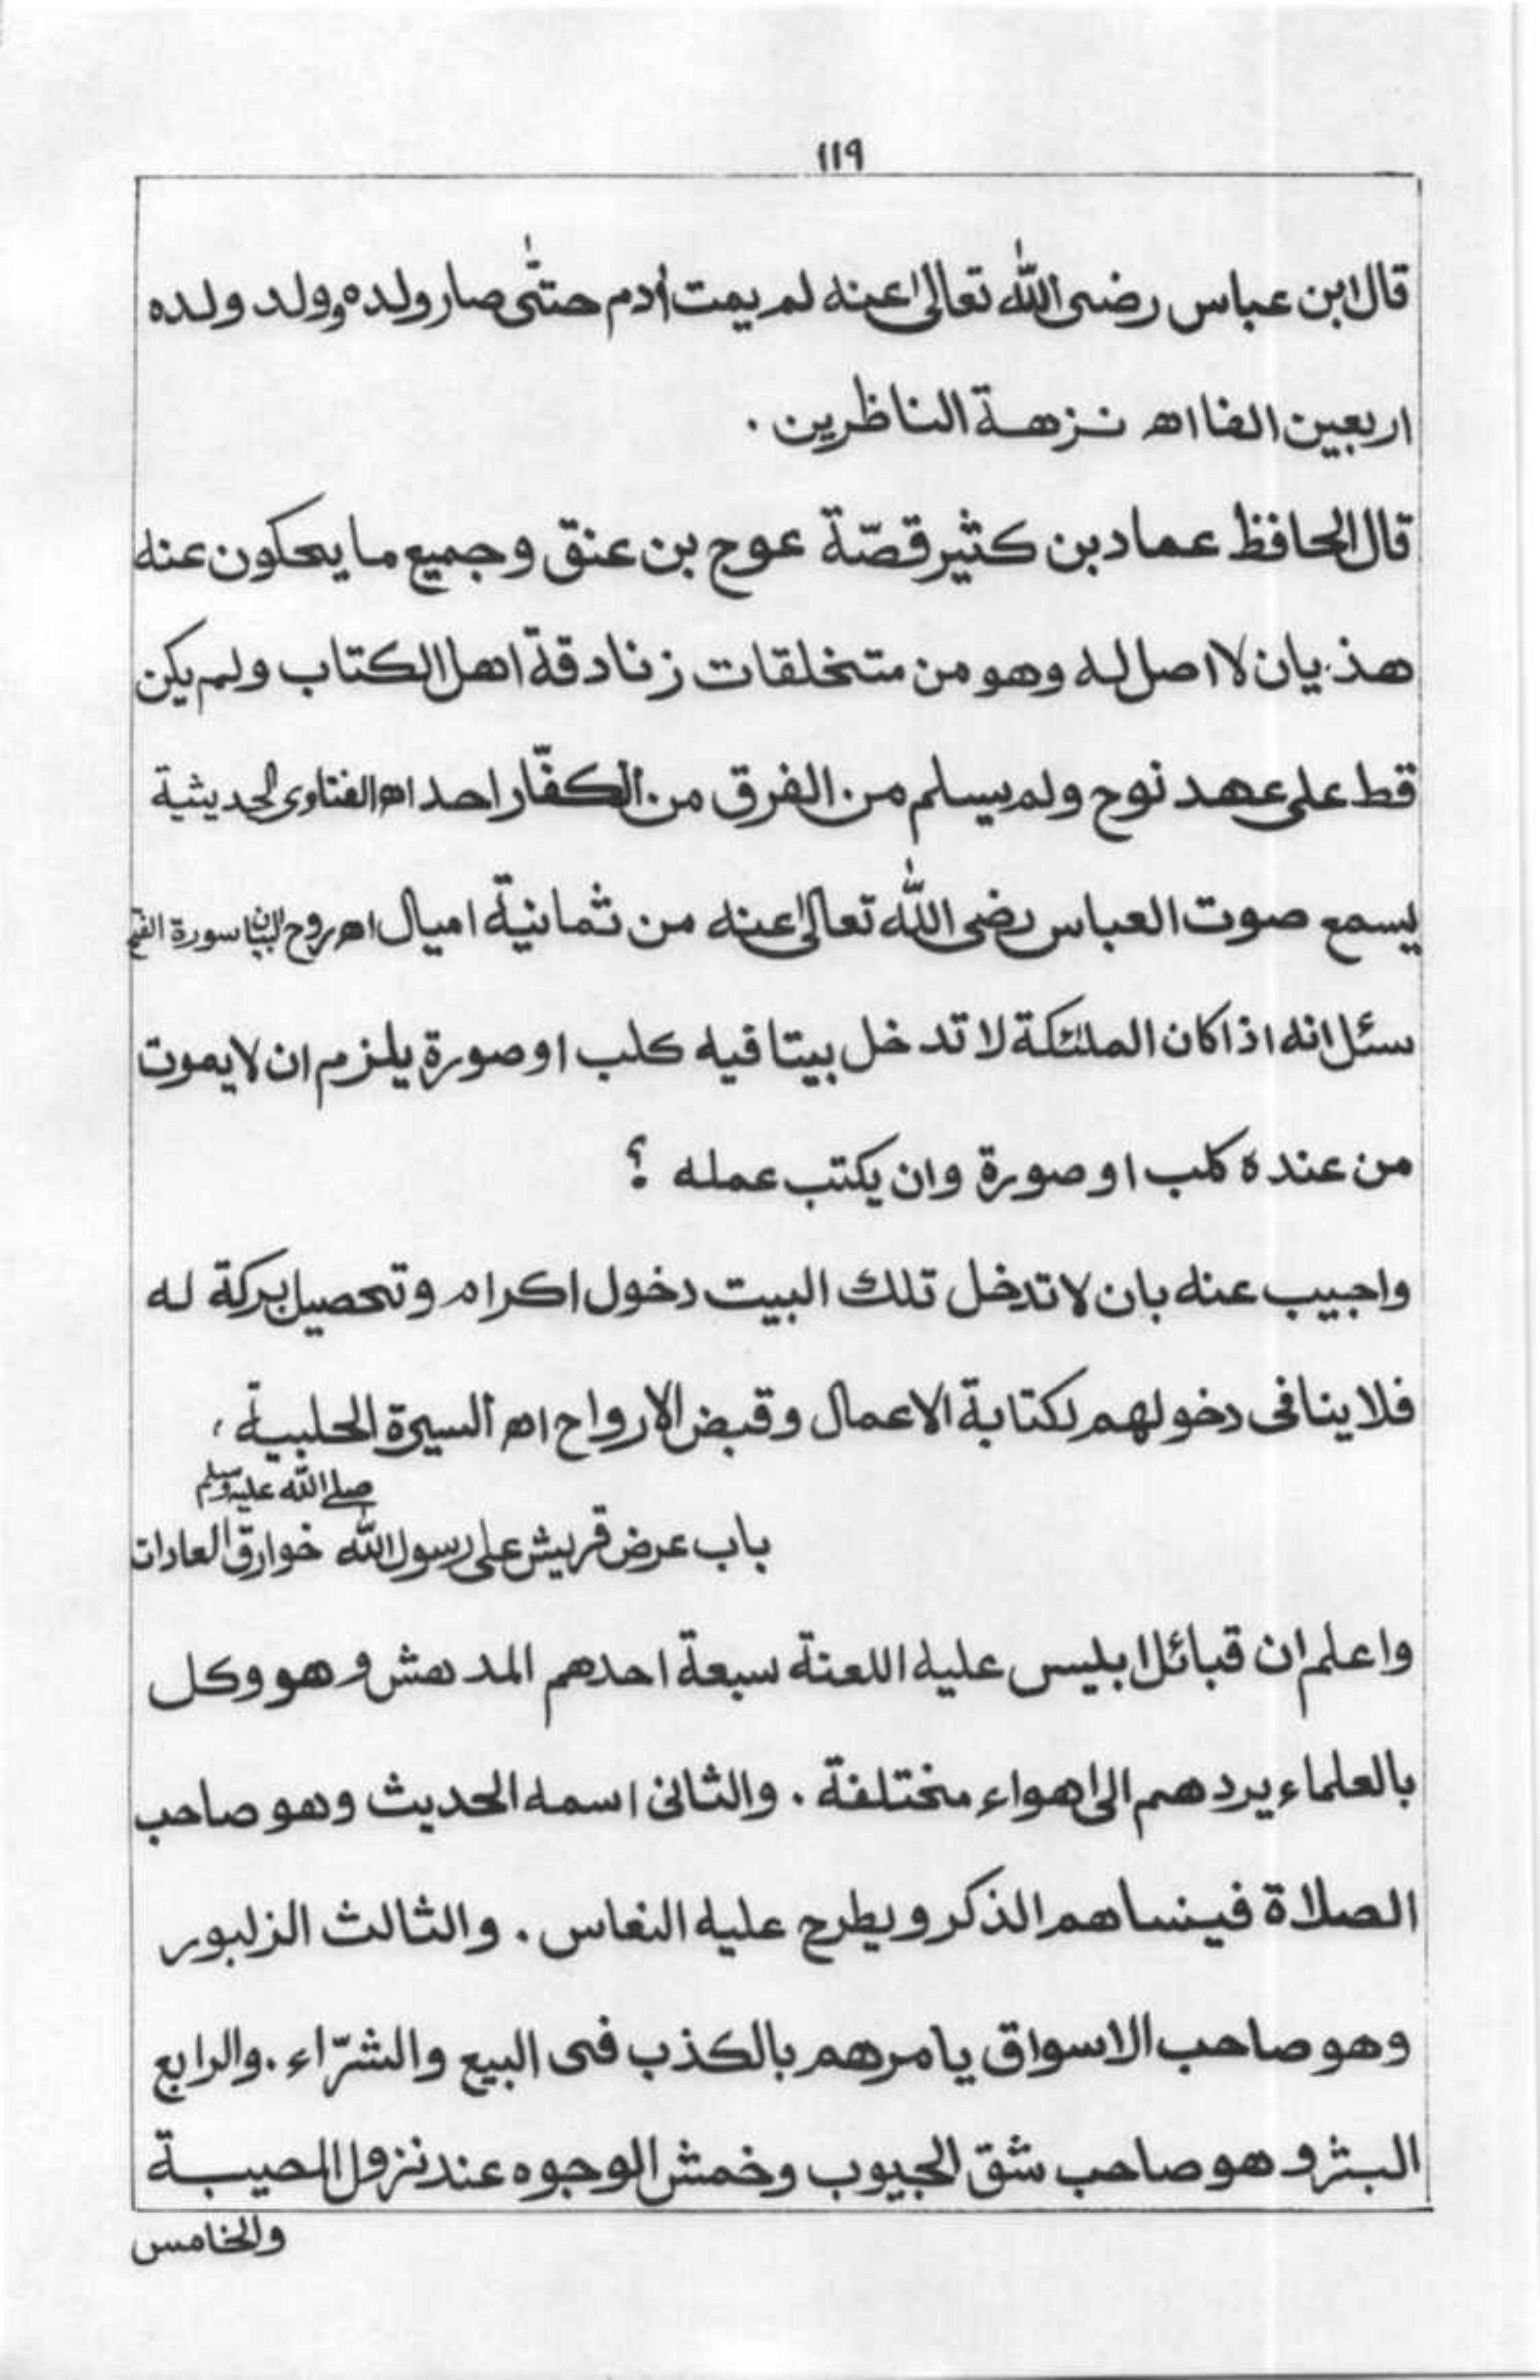 ١١٩
قال ابن عباس رضى الله تعالى عنه لم يمت أدم حتّى صار ولده وولد ولده
اربعين الفا اه نزهة الناظرين .
قال الحافظ عماد بن كثير قصّة عوج بن عنق وجميع ما يحكون عنه
هذيان لا اصل له وهو من متخلقات زنادقة اهل الكتاب ولم يكن
قط على عهد نوح ولم يسلم من الفرق من الكفّار احد اه الفتاوى الحديثية
يسمع صوت العباس رضى الله تعالى عنه من ثمانية اميال اه روح البيان سورة الفتح
سئل انه اذا كان الملئكة لا تدخل بيتا فيه كلب او صورة يلزم ان لا يموت
من عنده كلب او صورة وان يكتب عمله ؟
واجيب عنه بان لا تدخل تلك البيت دخول اكرام وتحصيل بركة له
فلا ينافى دخولهم لكتابة الاعمال وقبض الارواح اه السيرة الحلبية ،
باب عرض قريش على رسول الله صلى الله عليه وسلم خوارق العادات
واعلم ان قبائل ابليس عليه اللعنة سبعة احدهم المدهش وهو وكل
بالعلماء يردهم الى اهواء مختلفة . والثانى اسمه الحديث وهو صاحب
الصلاة فينساهم الذكر ويطرح عليه النعاس . والثالث الزلبور
وهو صاحب الاسواق يامرهم بالكذب فى البيع والشّراء . والرابع
البثر وهو صاحب شق الجيوب وخمش الوجوه عند نزول المصيبة
والخامس